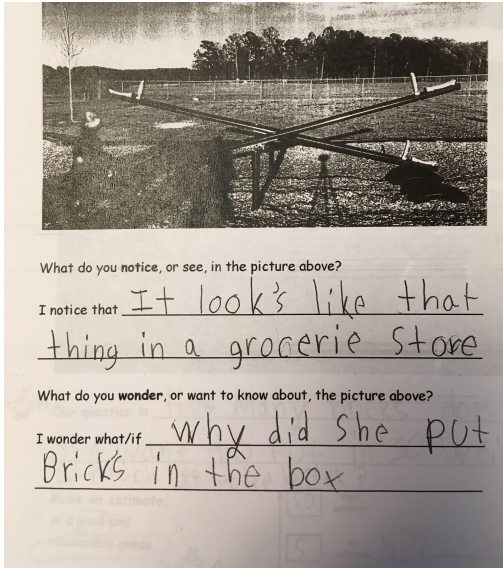 What do you notice, or see, in the picture above?
I notice that It look's like that
thing in a grocerie Store
What do you wonder, or want to know about, the picture above?
I wonder what/if why did She put
Brick's in the box